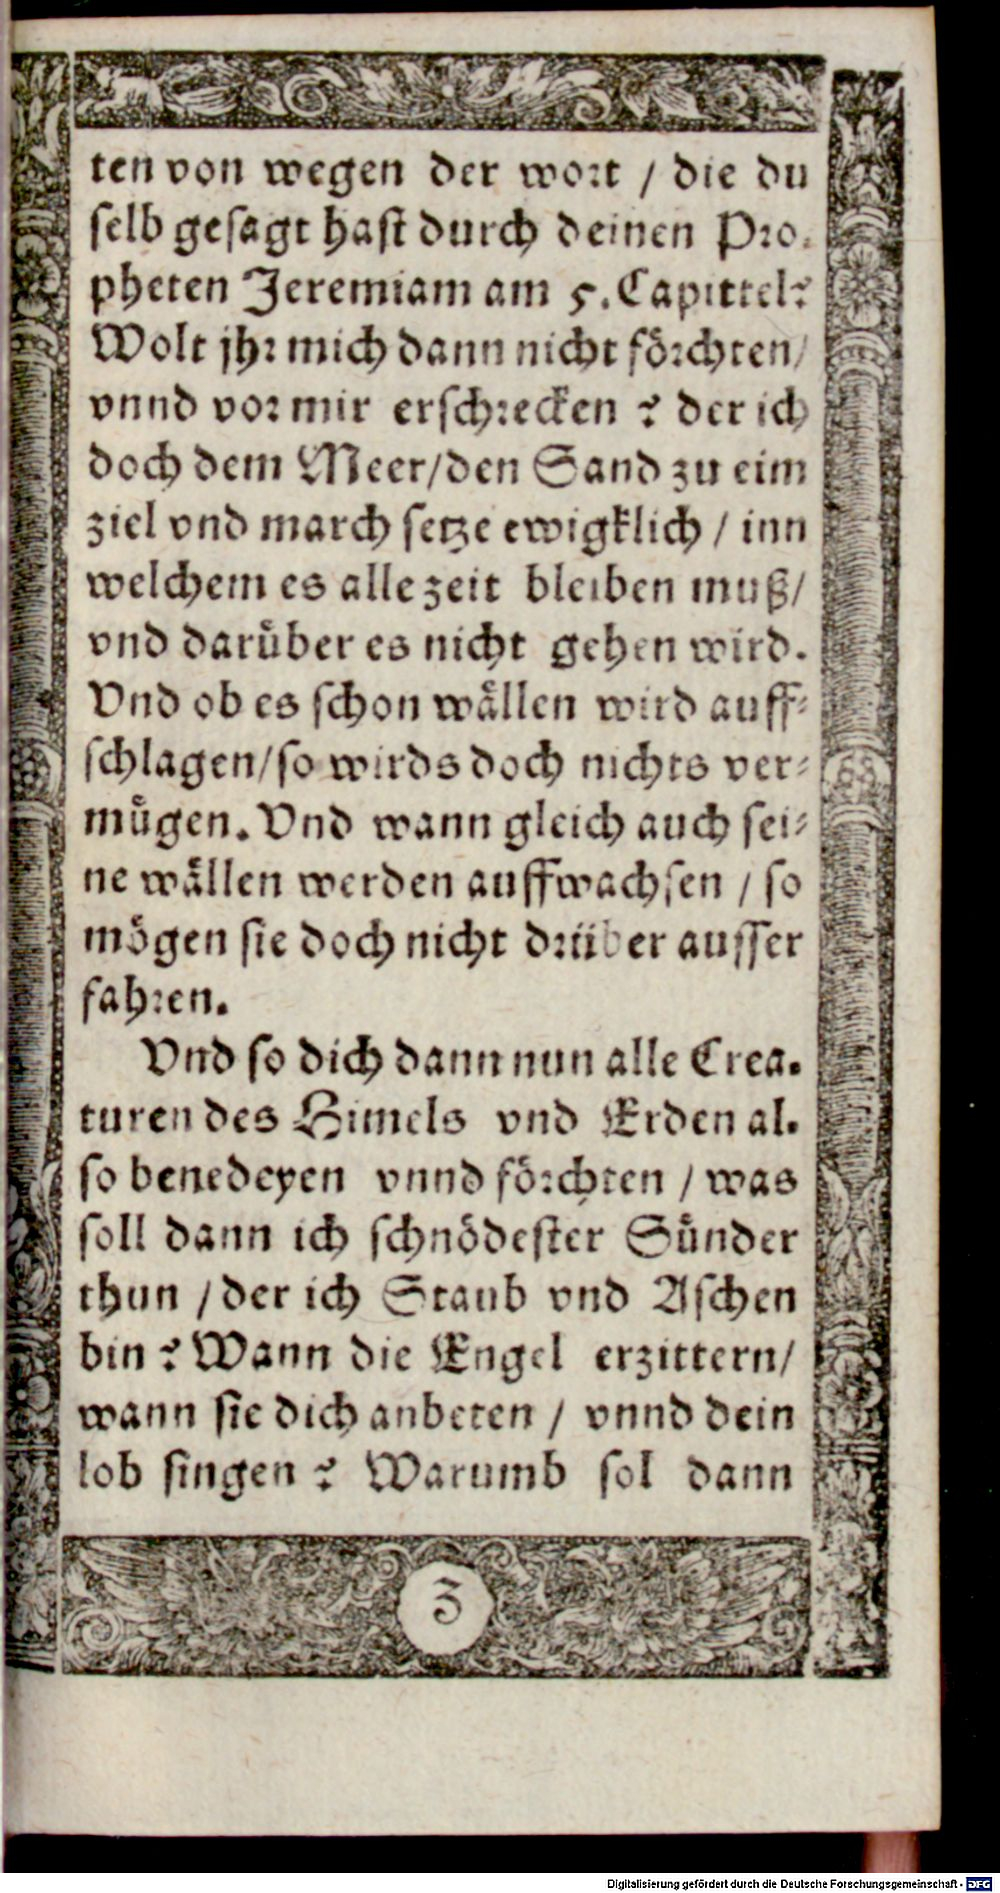 ten von wegen der wort / die du
selb gesagt hast durch deinen Pro-
pheten Jeremiam am 5. Capittel?
Wolt jhr mich dann nicht förchten/
vnnd vor mir erschrecken ? der ich
doch dem Meer/den Sand zu eim
ziel vnd march setze ewigklich / inn
welchem es alle zeit bleiben muß/
vnd darüber es nicht gehen wird.
Vnd ob es schon wällen wird auff-
schlagen/so wirds doch nichts ver-
mügen. Vnd wann gleich auch sei-
ne wällen werden auffwachsen / so
mögen sie doch nicht drüber ausser
fahren.
Vnd so dich dann nun alle Crea-
turen des Himels vnd Erden al-
so benedeyen vnnd förchten / was
soll dann ich schnödester Sünder
thun / der ich Staub vnd Aschen
bin ? Wann die Engel erzittern/
wann sie dich anbeten / vnnd dein
lob singen ? Warumb sol dann
3
Digitalisierung gefördert durch die Deutsche Forschungsgemeinschaft - DFG